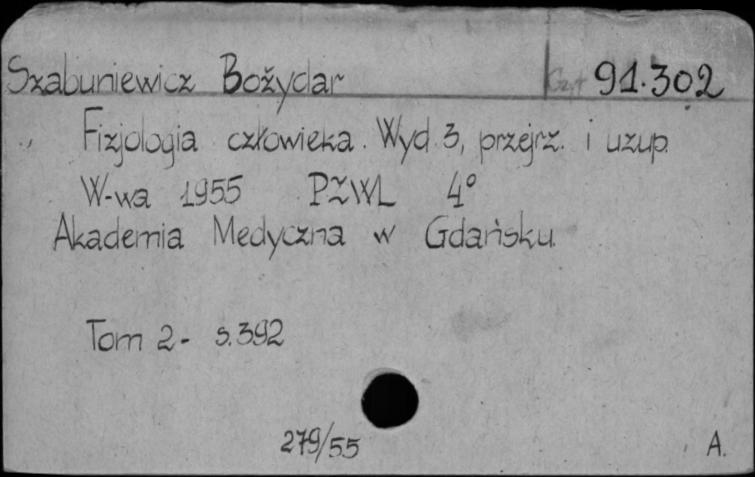 Szabuniewicz Bożydar Czyt 91.302
Fizjologia człowieka. Wyd. 3, przejrz. i uzup.
W-wa 1955 PZWL 4°
Akademia Medyczna w Gdańsku.
Tom 2- s.392
279/55 A.